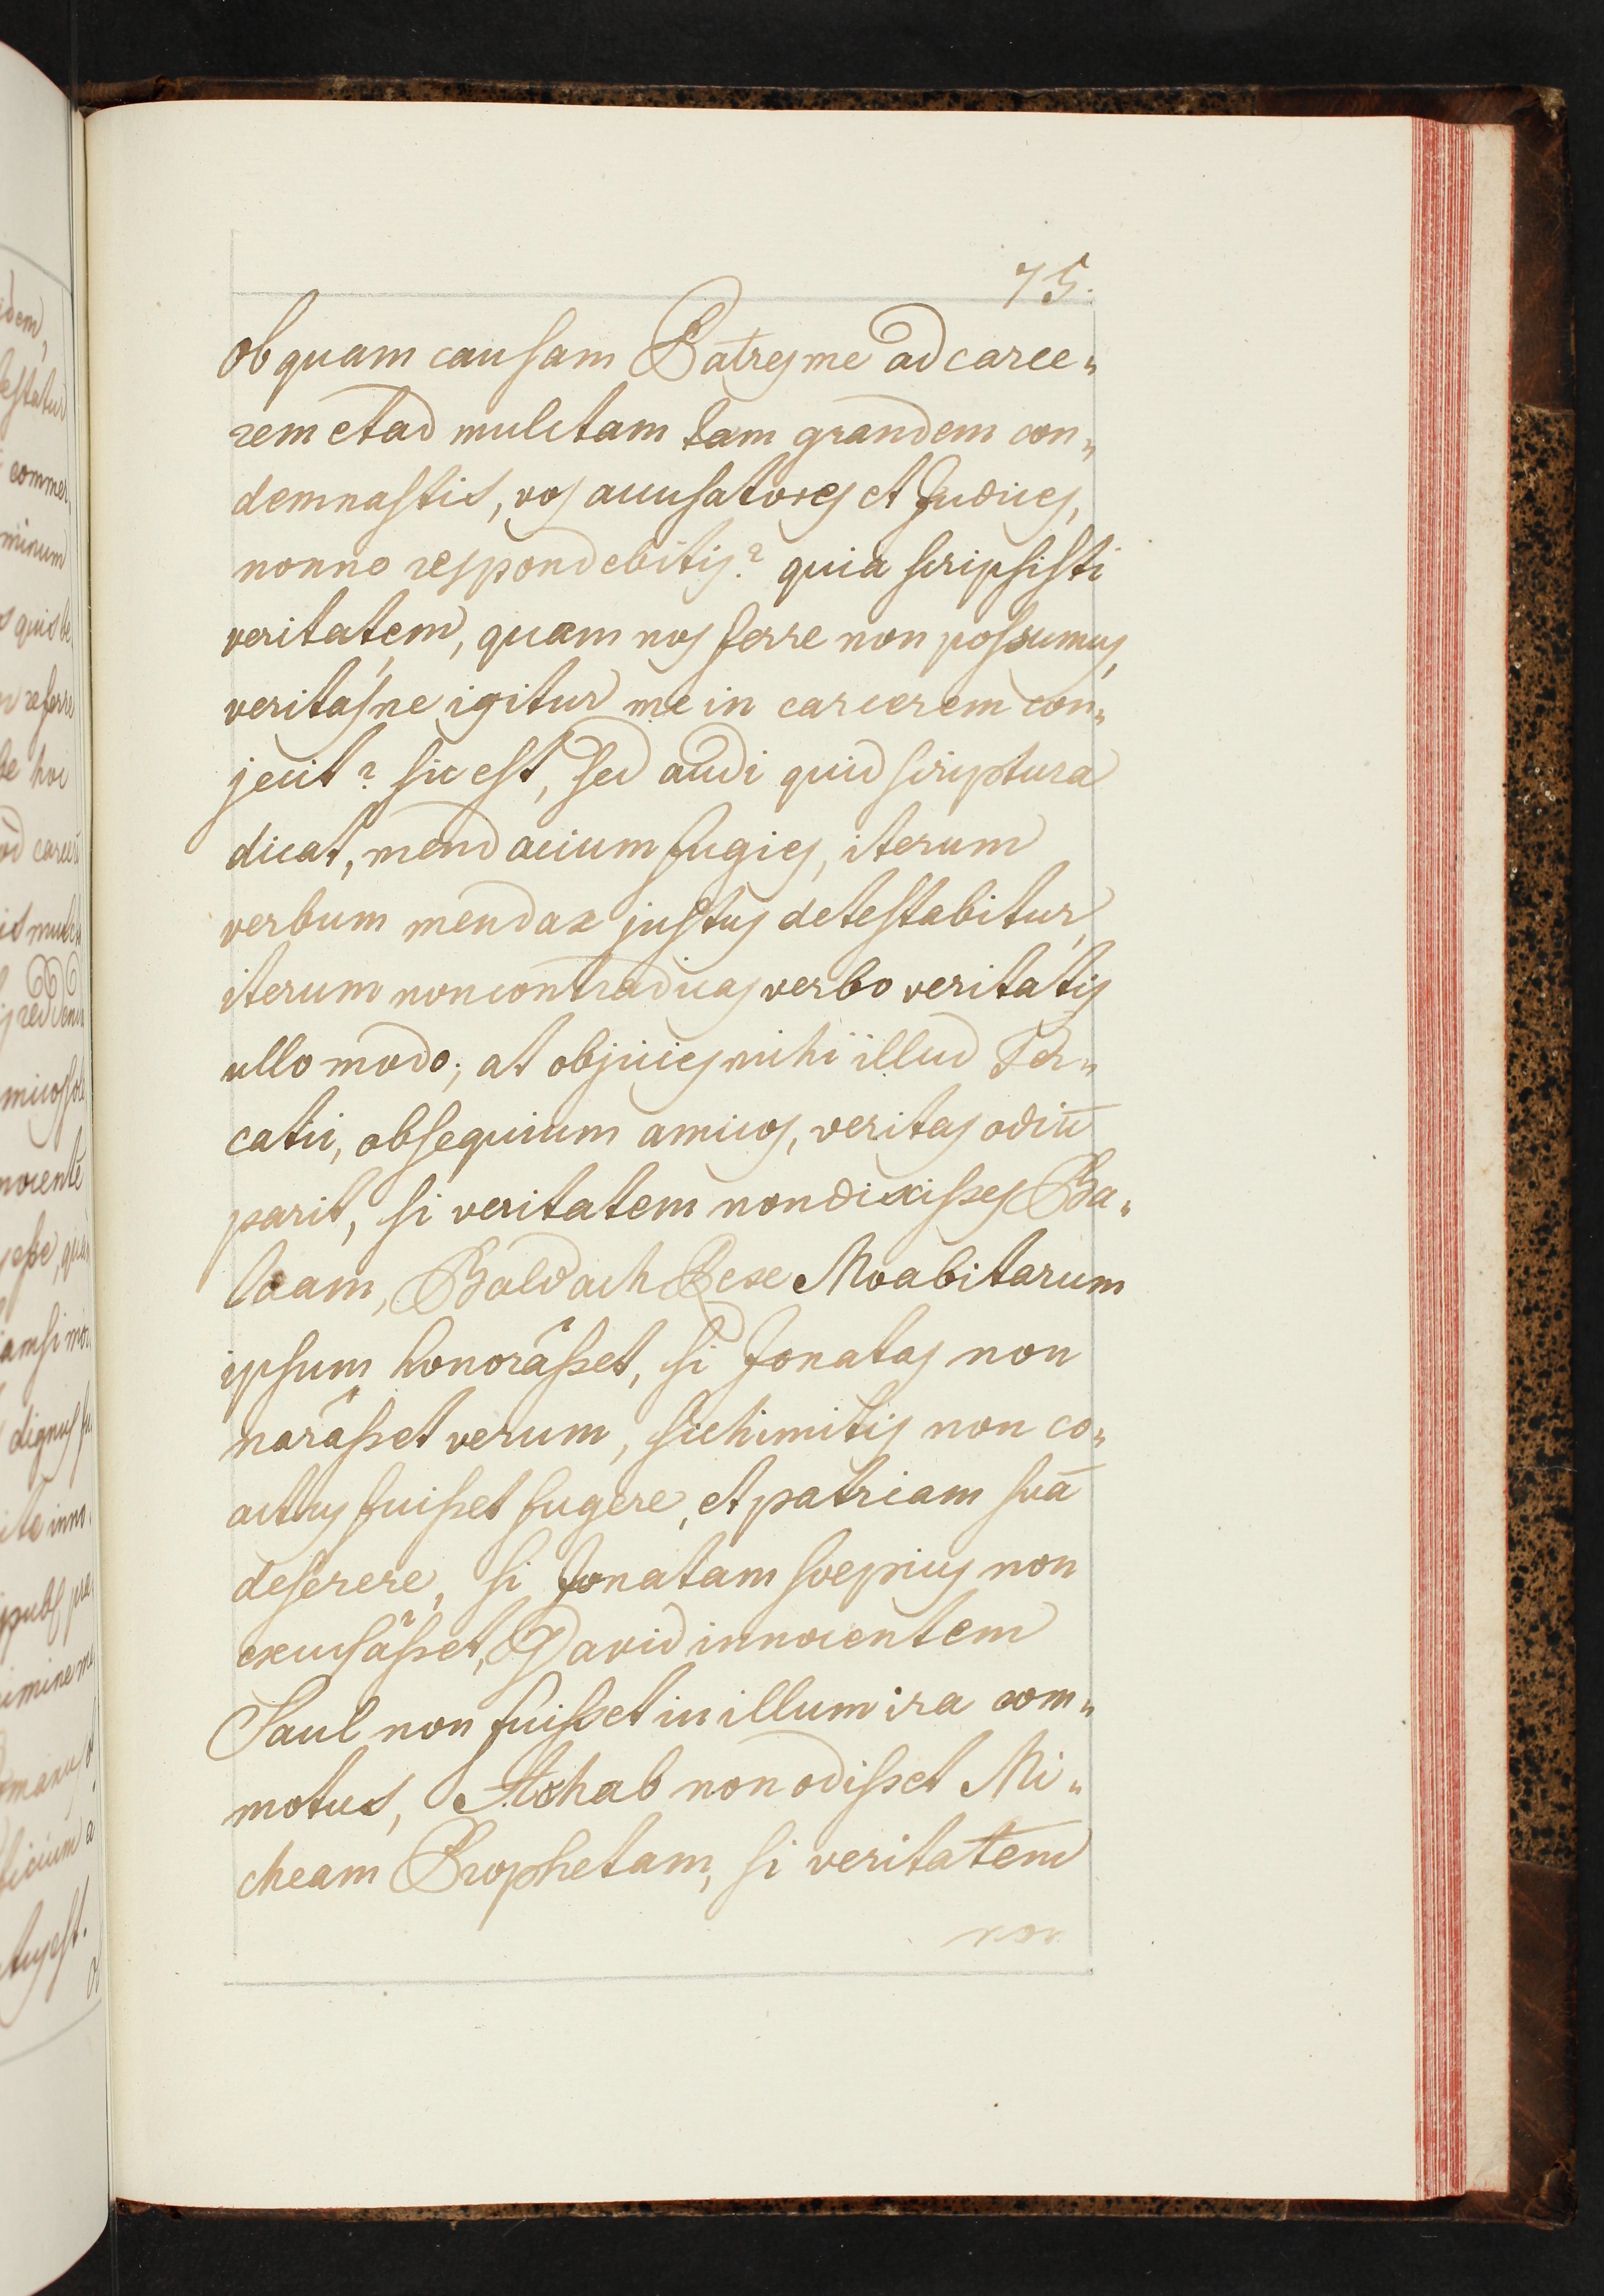 75.
Ob quam causam Patres me ad carce„
rem et ad mulctam tam grandem con„
demnastis, vos accusatores et Judices,
nonne respondebitis? quia scripsisti
veritatem, quam nos ferre non possumus,
veritasne igitur me in carcerem con„
jecit? sic est, sed audi quid scriptura
dicat, mendacium fugies, iterum
verbum mendax justus detestabitur,
iterum non contradicas verbo veritatis
ullo modo; at objicies mihi illud Ter„
catii, obsequium amicos, veritas odiū
parit, si veritatem non dixisses Ba„
laam, Baldach Rex Moabitarum
ipsum honorâsset, si Jonatas non
narâsset verum, sichimitis non co„
actus fuisset fugere, et patriam suā
deserere, si Jonatam soepius non
excusâsset, David innocentem
Saul non fuisset in illum ira com„
motus, Achab non odisset Mi„
cheam Prophetam, si veritatem
non